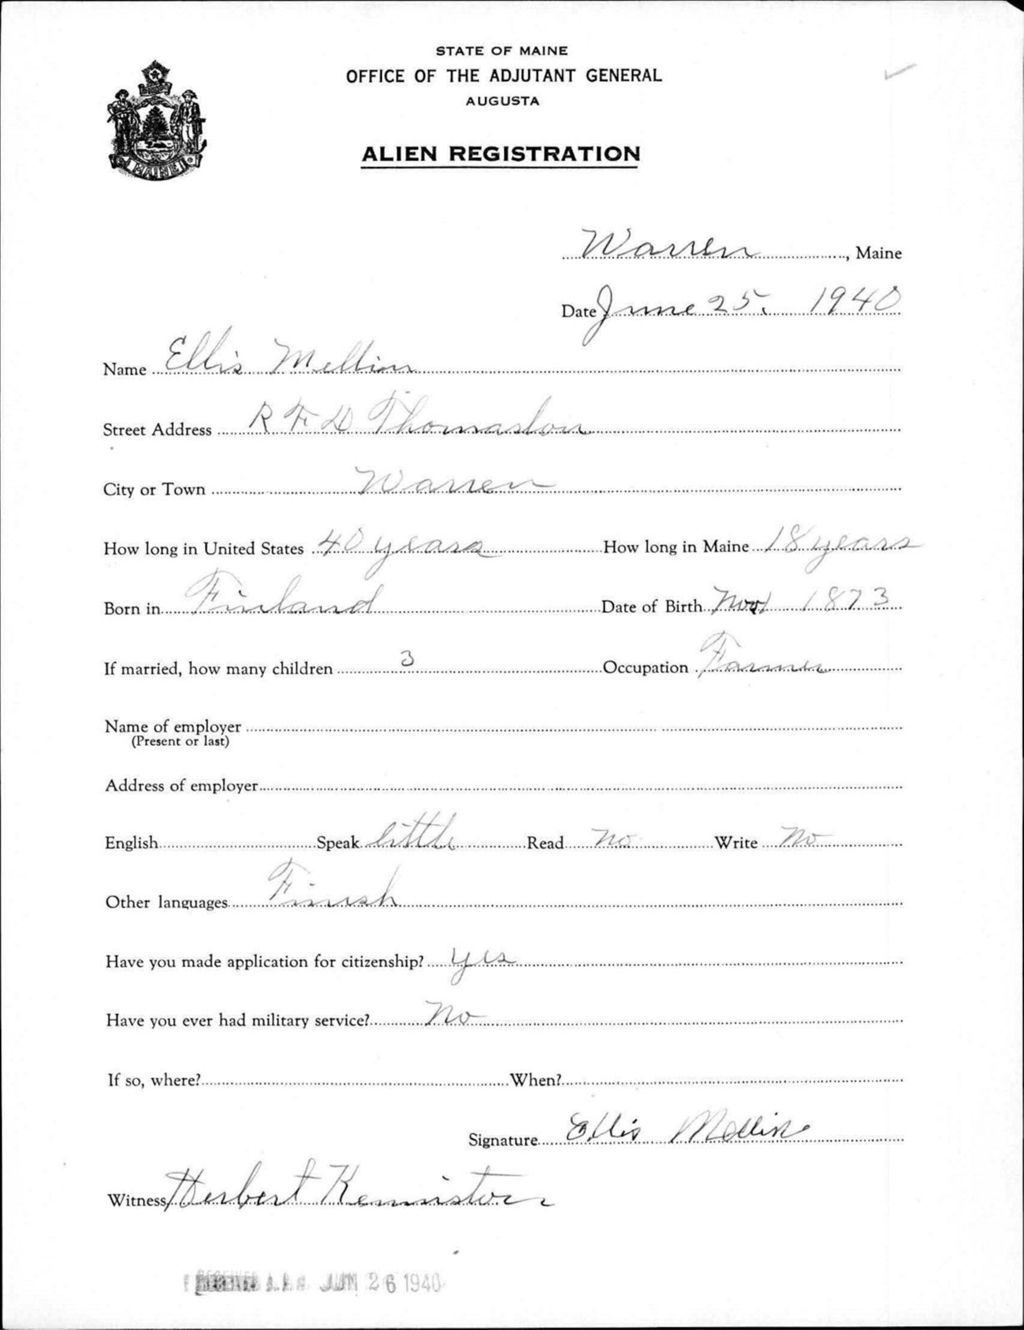 STATE OF MAINE
OFFICE OF THE ADJUTANT GENERAL
AUGUSTA
ALIEN REGISTRATION
MAINE
Warren, Maine
Date June 25, 1940
Name Ellis Mellin
Street Address R F D Thomaston
City or Town Warren
How long in United States 40 years How long in Maine 18 years
Born in Finland Date of Birth Nov 1 1873
If married, how many children 3 Occupation Farmer
Name of employer
(Present or last)
Address of employer
English Speak little Read no Write No
Other languages Finish
Have you made application for citizenship? yes
Have you ever had military service? No
If so, where? When?
Signature Ellis Mellin
Witness Herbert Kenniston
JUN 26 1940